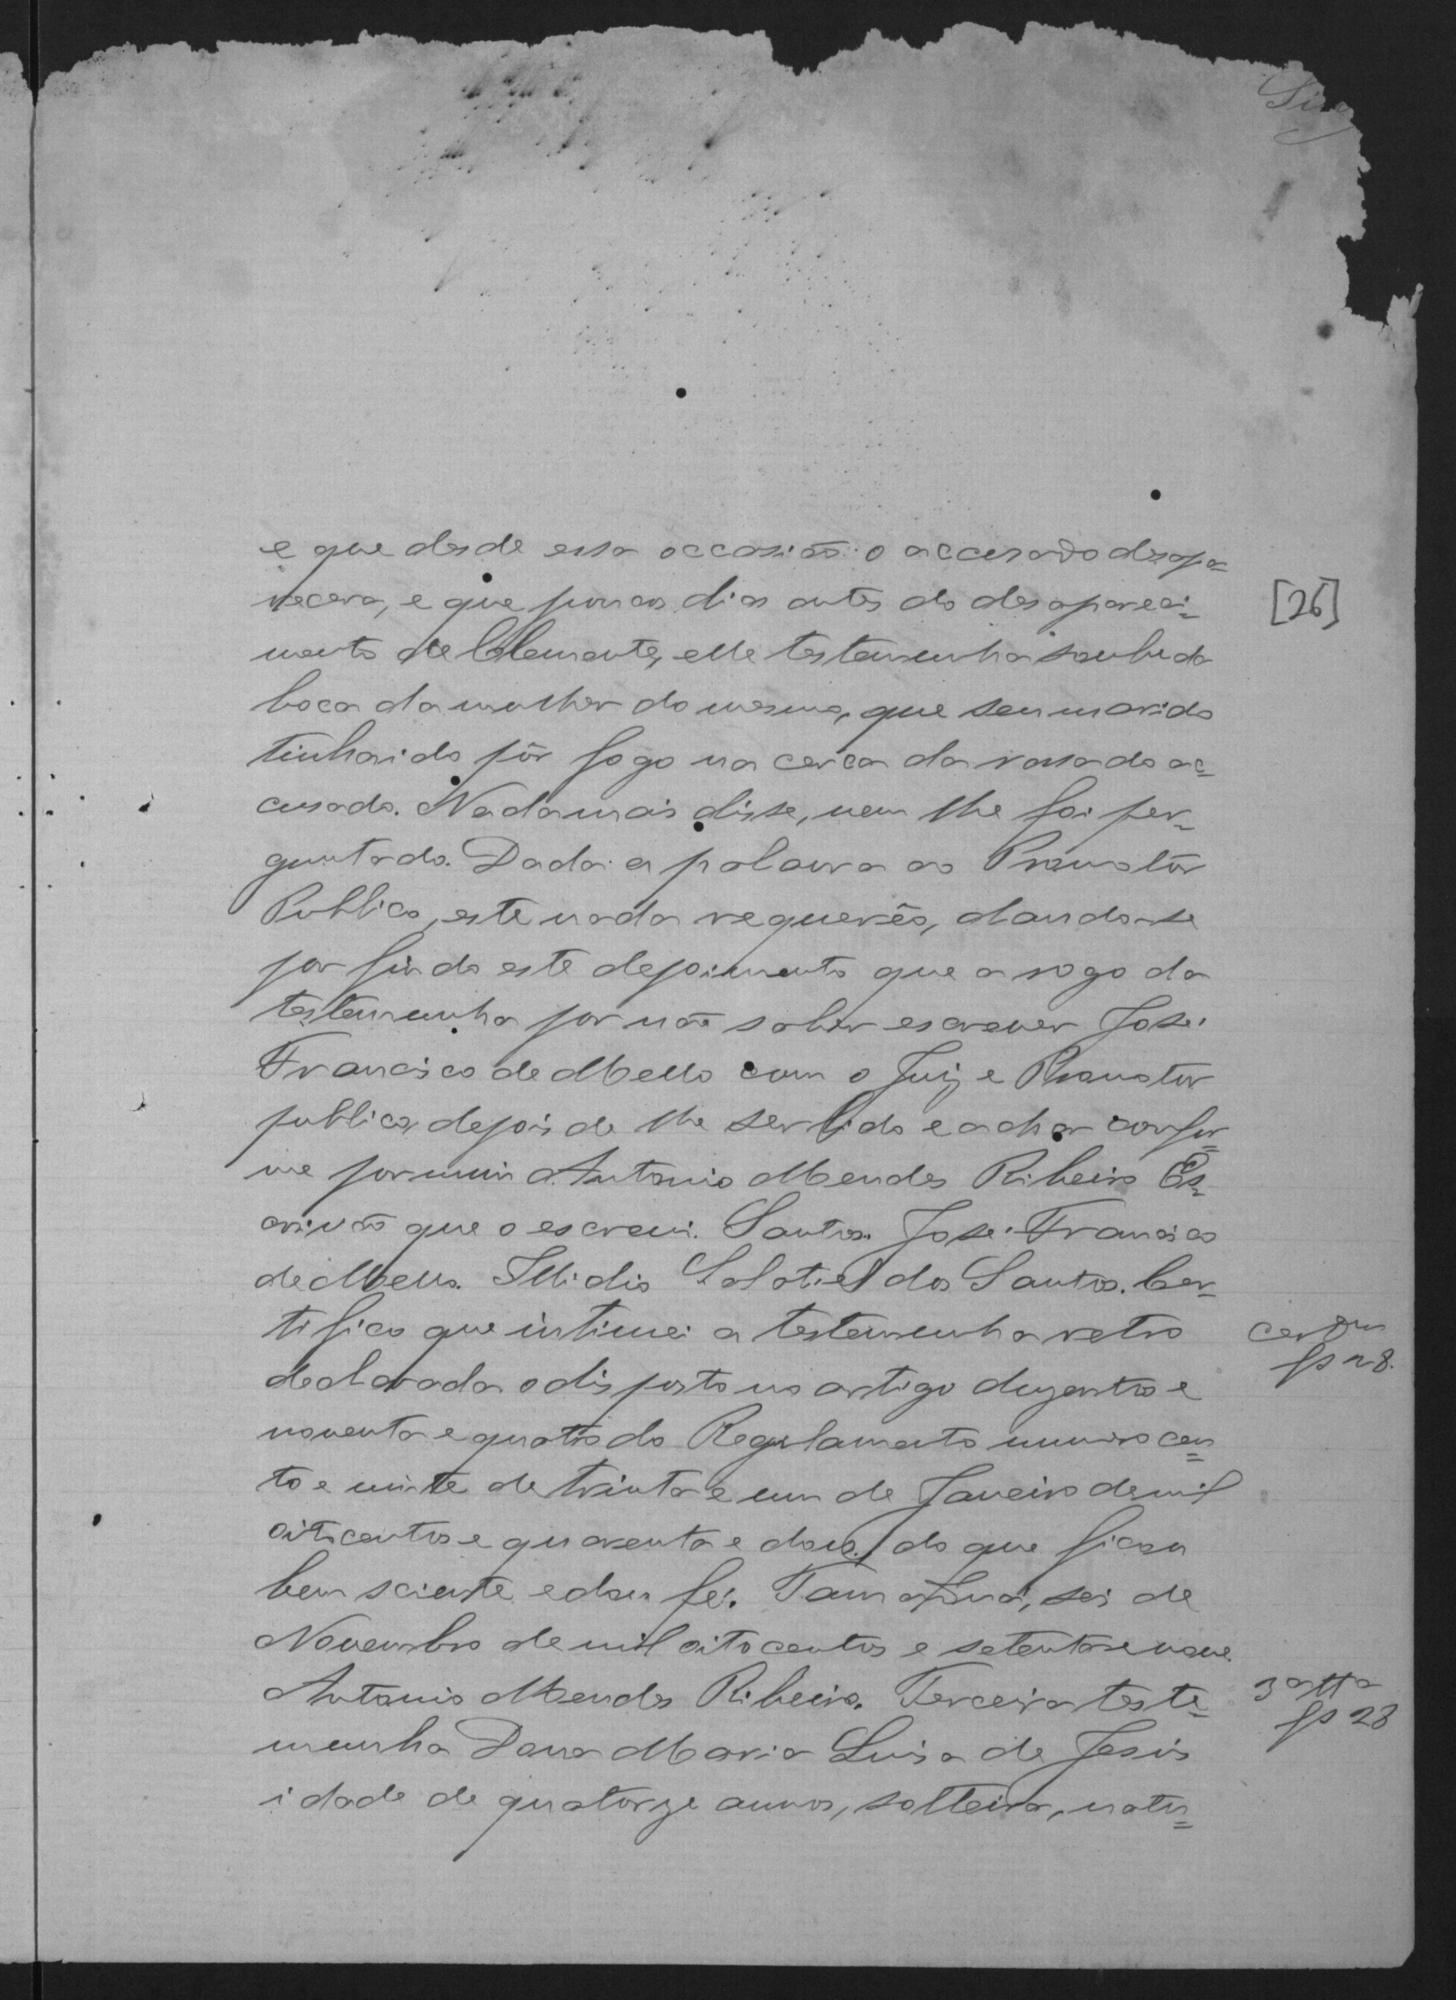 e que desde essa occasião o accusado desapa=
recera, e que poucos dias antes do desapareci=
mento de Clemente, elle testemunha soube da
boca da mulher do mesmo, que seu marido
tinha ido pôr fogo na cerca da rossa do ac=
cusado. Nada mais disse, nem lhe foi per=
guntado. Dada a palavra ao Promotôr
Publico, este nada requerêo, dando-se
por findo este depoimento que a rogo da
testemunha por não saber escrever José
Francisco de Mello com o Juiz e Promotor
publico, depois de lhe ser lido e achar confor=
me por mim Antonio Mendes Ribeiro Es=
crivão que o escrevi. Santos. José Francisco
de Mello. Illidio Salatiel dos Santos. Cer=
tifico que intimei a testemunha retro
declarada o disposto no artigo duzentos e
noventa e quatro do Regulamento numero cen=
to e vinte de trinta e um de Janeiro de mil
oitocentos e quarenta e dous, do que ficou
bem sciente e dou fé. seis de
Novembro de mil oitocentos e setenta e nove.
Antonio Mendes Ribeiro. Terceira teste=
munha Dona Maria Luisa de Jesus
idade de quatorze annos, solteira, natu=
[26]
fs 28.
3ª ttª
fs 28